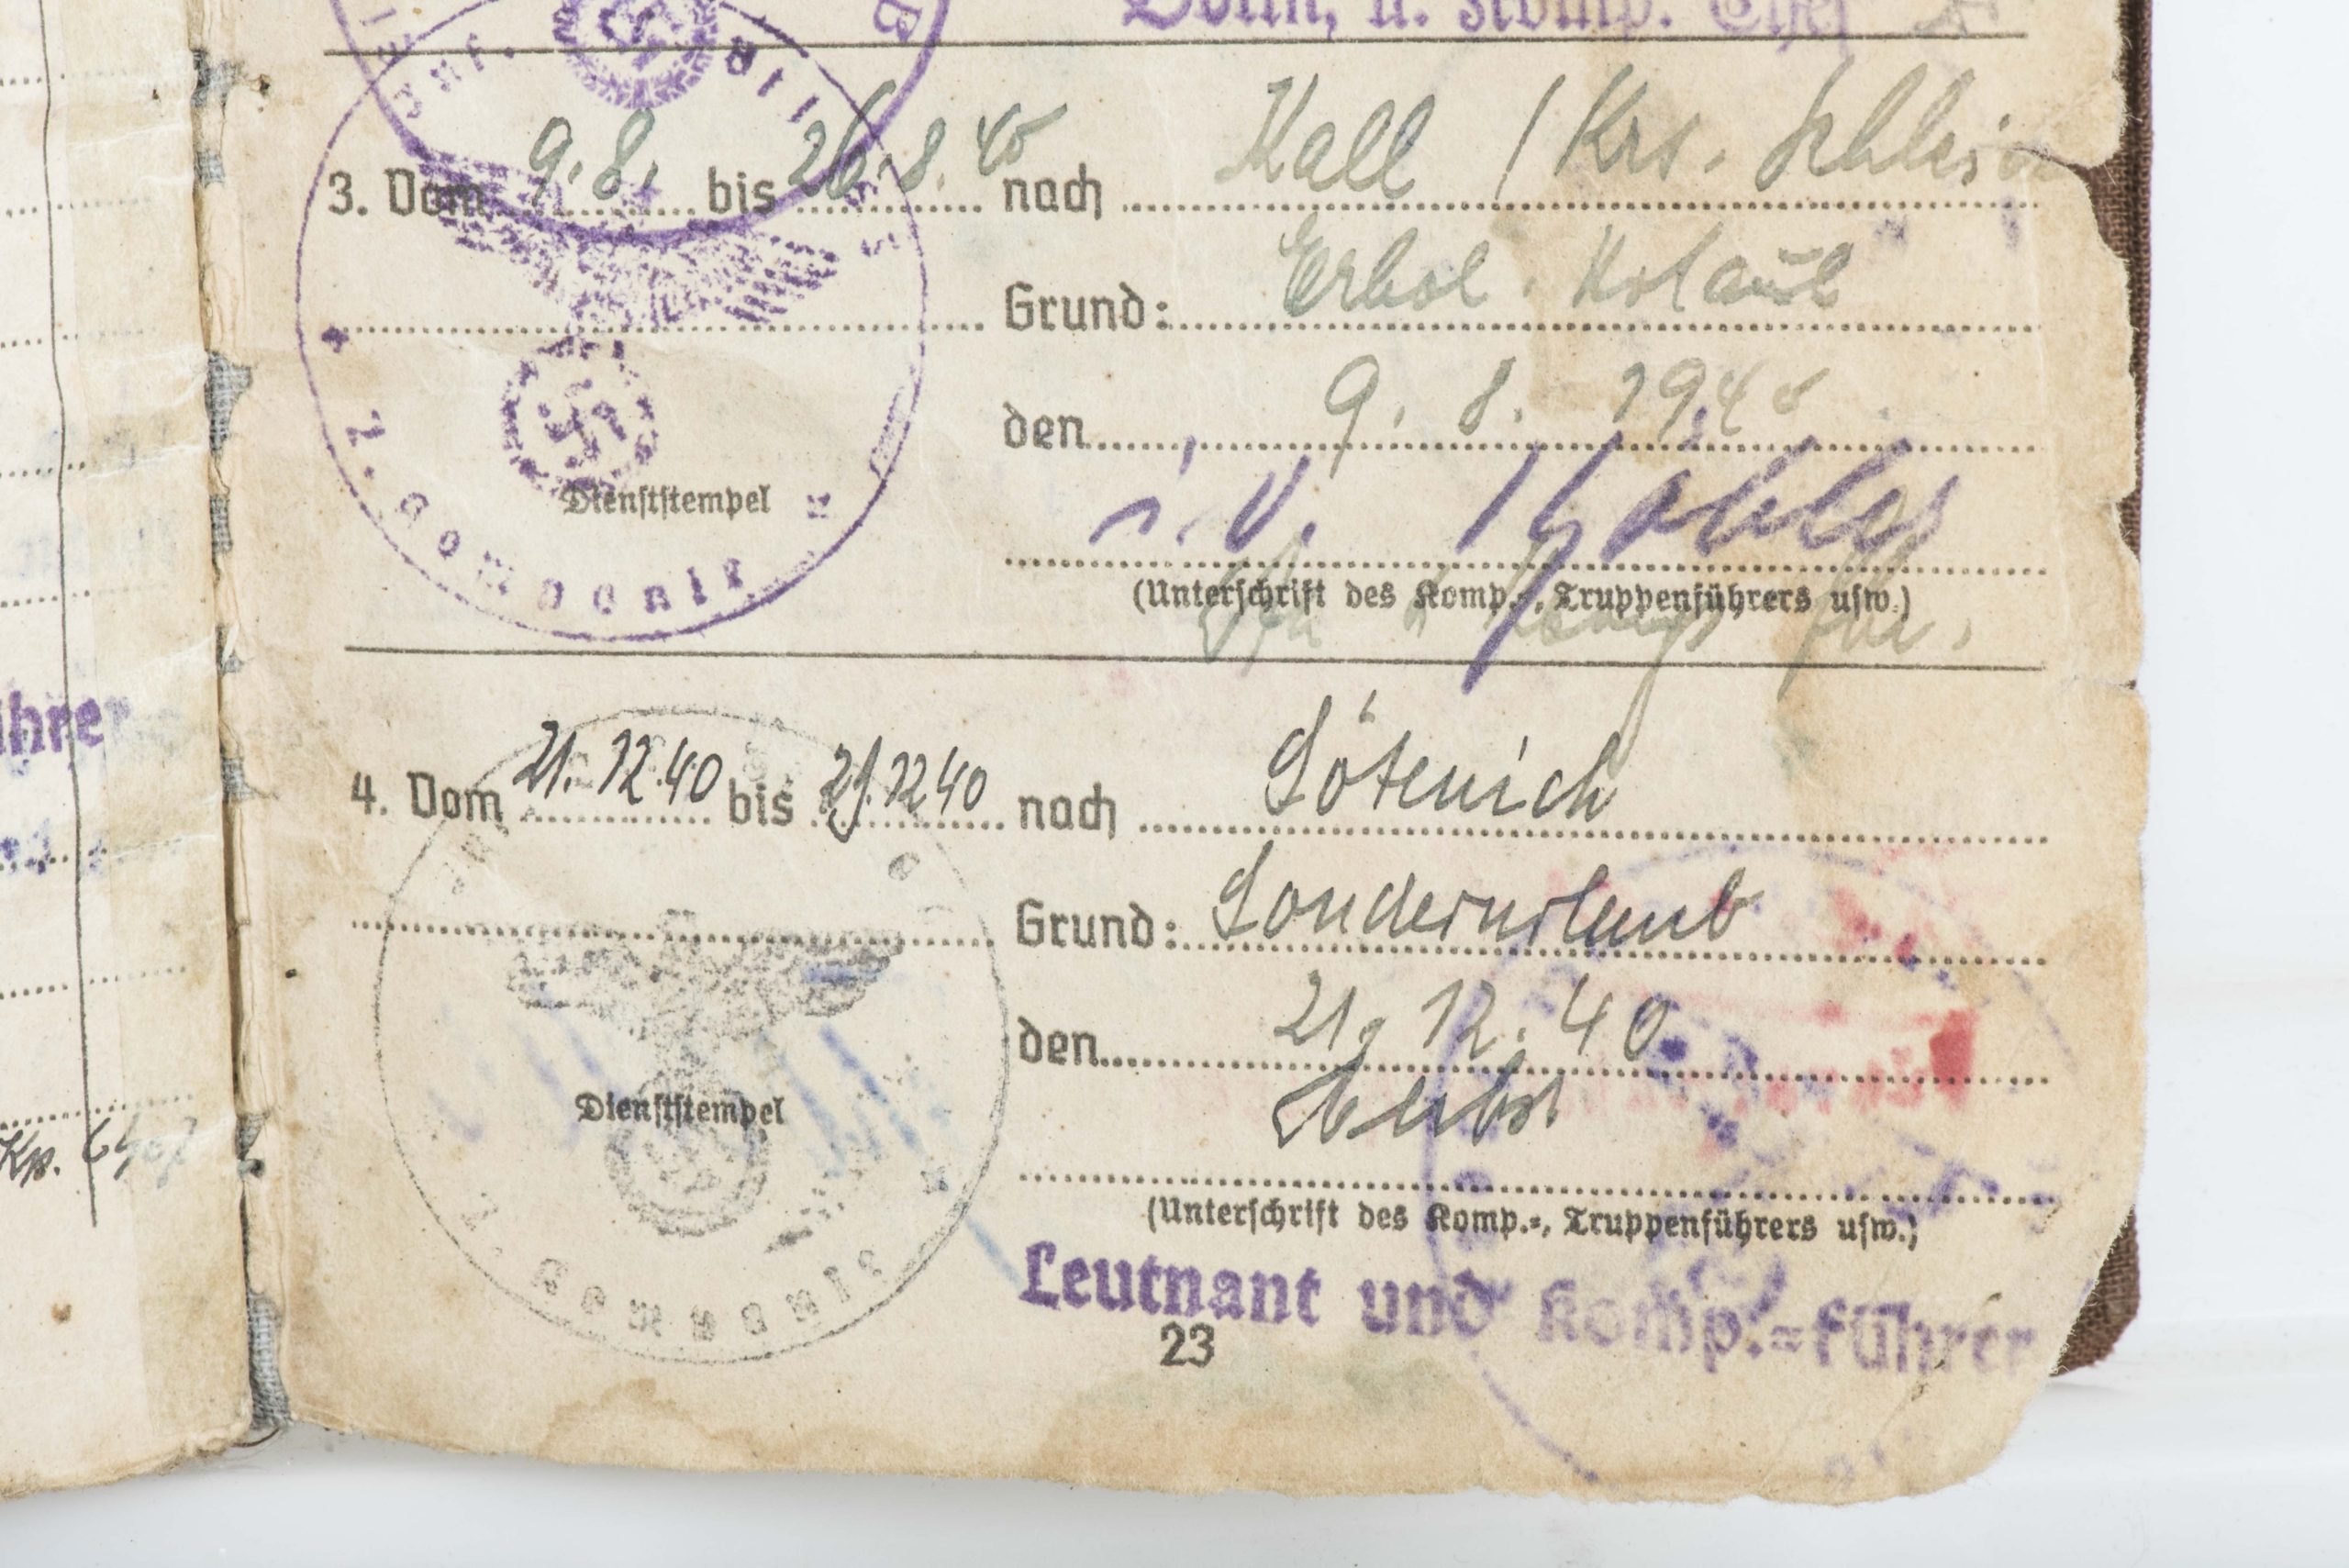 u. Komp. Chef
3. Vom 9.8. bis 26.8.40 nach Kall / Krs. Schleiden
Grund: Erhol. Urlaub
den 9. 8. 1940
i.V.
Dienststempel
2. Kompanie
(Unterschrift des Komp.-, Truppenführers usw.)
4. Vom 21.12.40 bis 29.12.40 nach Sötenich
Grund: Sonderurlaub
den 21. 12. 40
Dienststempel
Herbst
(Unterschrift des Komp.-, Truppenführers usw.)
2. Kompanie
Leutnant und Komp.=führer
23
ührer
Kp.